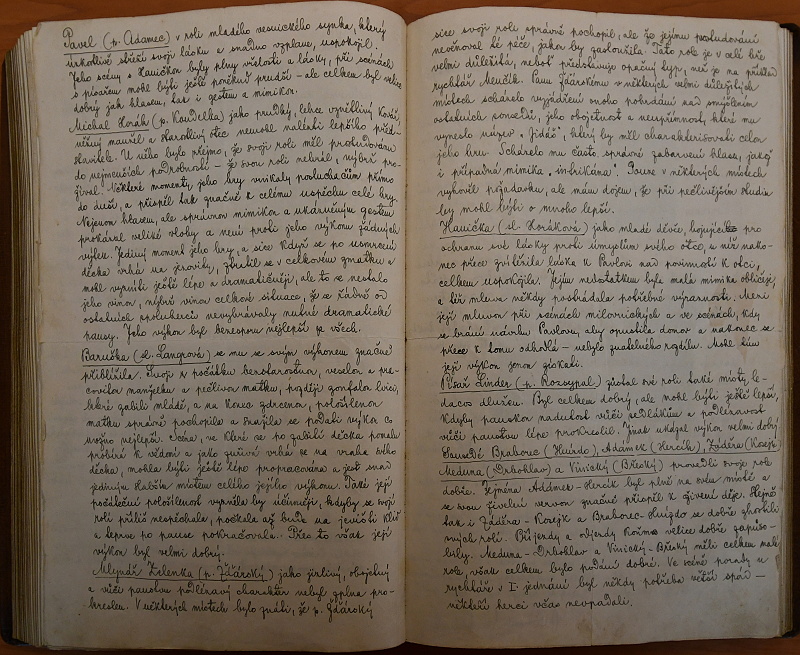 Pavel (p. Adamec) v roli mladého vesnického synka, který
střeží svoji lásku a snadno vzplane, uspokojil.
Jeho scény s Haničkou byly plny vřelosti a lásky, při scénách
s písařem mohl býti ještě poněkud prudší – ale celkem byl velice
dobrý jak hlasem, tak i gestem a mimikou.
Michal Horák (p. Koudelka) jako prudký, lehce vznětlivý kovář,
něžný manžel a starostlivý otec nemohl nalézti lepšího před-
stavitele. U něho bylo přejmo, že svoji roli měl prostudovanou
do nejmenších podrobností – že svou roli nehrál, nýbrž pro-
žíval. Některé momenty jeho hry vnikaly posluchačům přímo
do duší, a přispěl tak značně k celému úspěchu celé hry.
Nejenom hlasem, ale správnou mimikou a ukázněným gestem
prokázal veliké vlohy a není proti jeho výkonu žádných
výtek. Jediný moment jeho hry, a sice když se po usmrcení
děcka vrhá na žerovníky, ztratil se v celkovém zmatku a
mohl vyzníti ještě lépe a dramatičněji, ale to se nestalo
jeho vinou, nýbrž vinou celkové situace, že se řádně od
ostatních spoluherců nevybrávaly nutné dramatické
pausy. Jeho výkon byl bezesporu nejlepší ze všech.
Baruška (sl. Langrová) se mu se svým výkonem značně
přiblížila. Svoji z počátku bezstarostnou, veselou a pra-
covitou manželku a pečlivou matku, později zoufalou lvici,
které zabili mládě, a na konec zdrcenou, pološílenou
matku správně pochopila a snažila se podati výkon co
možno nejlepší. Scéna, ve které se po zabití děcka pomalu
probírá k vědomí a jako zuřivá vrhá se na vraha svého
děcka, mohla býti ještě lépe propracována a jest snad
jediným slabším místem celého jejího výkonu. Také její
počáteční pološílenost vyzněla by účinněji, kdyby se svojí
rolí příliš nespěchala, počkala až bude na jevišti klid
a teprve po pause pokračovala. Přes to však její
výkon byl velmi dobrý.
Mlynář Zelenka (p. Žďárský) jako žárlivý, obojetný
a vůči panstvu podlézavý charakter nebyl úplně pro-
kreslen. V některých místech bylo znáti, že p. Žďárský
sice svoji roli správně pochopil, ale že jejímu prostudování
nevěnoval té péče, jakou by zasloužila. Tato role je v celé hře
velmi důležitá, neboť představuje opačný typ, než je na příklad
rychtář Menčík. Panu Žďárskému v některých velmi důležitých
místech scházelo vyjádření onoho pohrdání nad smýšlením
ostatních sousedů, jeho obojetnost a neupřímnost, které mu
vyneslo název „Jidáš“, který by měl charakterisovati celou
jeho hru. Scházelo mu často správné zabarvení hlasu, jakož
i případná mimika intrikána. Pouze v některých místech
vyhověl požadavku, ale mám dojem, že při pečlivějším studiu
by mohl býti o mnoho lepší.
Hanička (sl. Horáková) jako mladé děvče, bojující pro
ochranu své lásky proti úmyslům svého otce, u níž nako-
nec přece zvítězila láska k Pavlovi nad povinností k otci,
celkem uspokojila. Jejím nedostatkem byla malá mimika obličeje,
a též mluva někdy postrádala potřebné výraznosti. Mezi
její mluvou při scénách milovnických a ve scénách, kdy
se brání návrhu Pavlovu, aby opustila domov a nakonec se
přece k tomu odhodlá – nebylo znatelného rozdílu. Mohl tím
její výkon jenom získati.
Písař Linder (p. Rozsypal) zůstal své roli také místy le-
dacos dlužen. Byl celkem dobrý, ale mohl býti ještě lepší,
kdyby panskou nadutost vůči sedlákům a podlézavost
vůči panstvu lépe prokreslil. Jinak ukázal výkon velmi dobrý.
Sousedé Braborec (Huízdo), Adámek (Hercík), Záděra (Kozejk)
Meduna (Drbohlav) a Vinický (Břeský) provedli svoje role
dobře. Zejména Adámek-Hercík byl plně na svém místě a
se svou živelní vervou značně přispěl k oživení děje. Stejně
tak i Záděra-Kozejk a Braborec-Huízdo se dobře zhostili
svých rolí. Příjezdy a odjezdy koňmo velice dobře zapůso-
bily. Meduna-Drbohlav a Vinický-Břeský měli celkem malé
role, však celkem bylo podání dobré. Ve scéně porady u
rychtáře v I. jednání byl někdy potřeba větší spád –
někteří herci včas nevpadali.